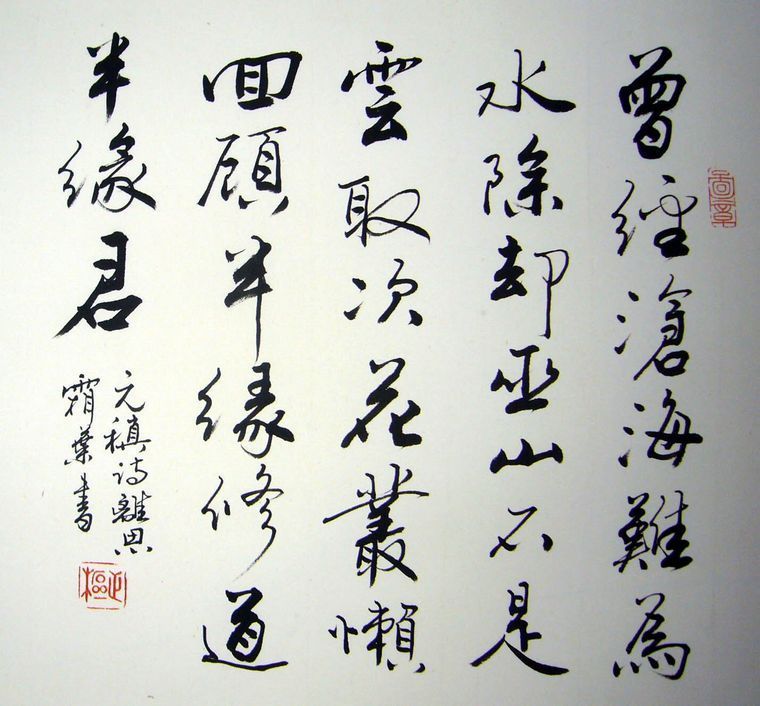 曾經滄海難為
水除却巫山不是
雲取次花叢懶
回顧半緣修道
半緣君
元稹詩離思
霜葉書